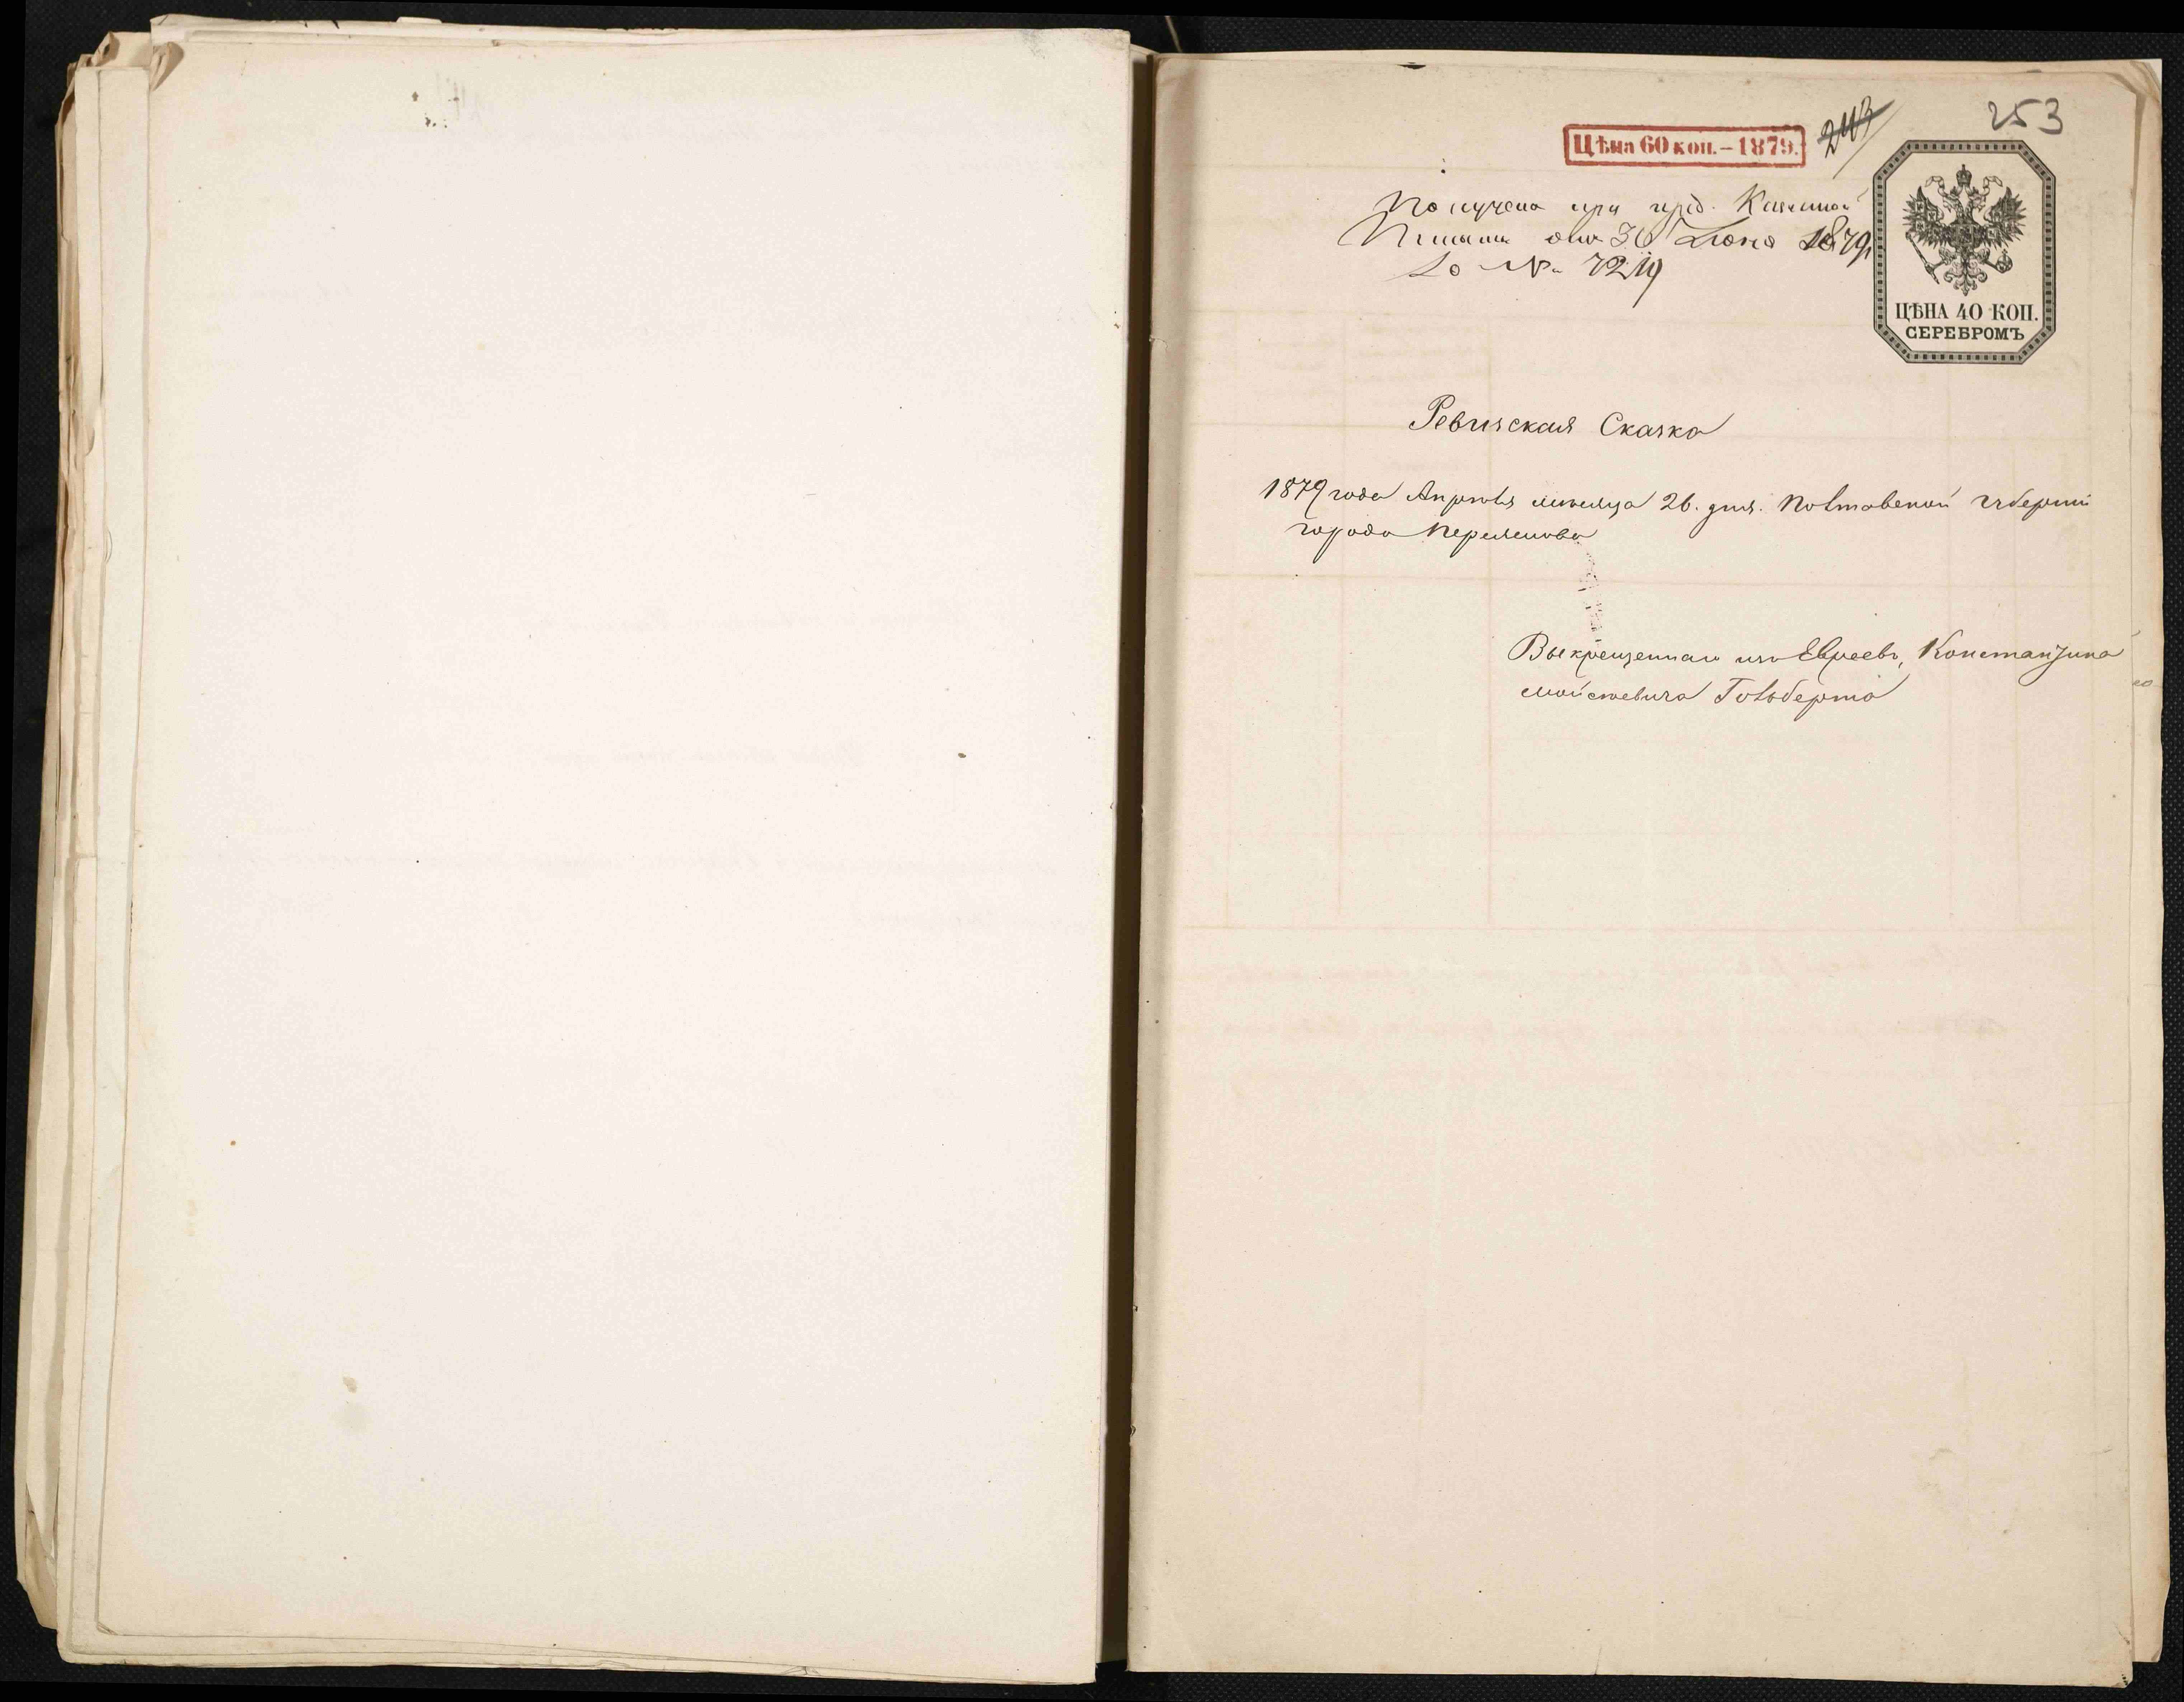 253
243
Цѣна 60 коп.–1879.
Получена при пред. Казенной
Палаты отъ 30 Июня 1879
за № 7219
ЦѢНА 40 КОП.
СЕРЕБРОМЪ
Ревизская Сказка
1879 года Апрѣля мѣсяца 26. дня. Полтавской губерніи
города Переяслова
Выкрещеннаго изъ Евреевъ, Константина
Мойсеевича Гольберта